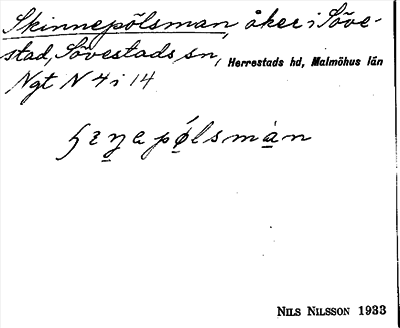 Skinnepölsman, åker i Söve-
stad, Sövestads sn, Herrestads hd, Malmöhus län
Ngt N 4 i 14
pǿlsmàn
NILS NILSSON 1933